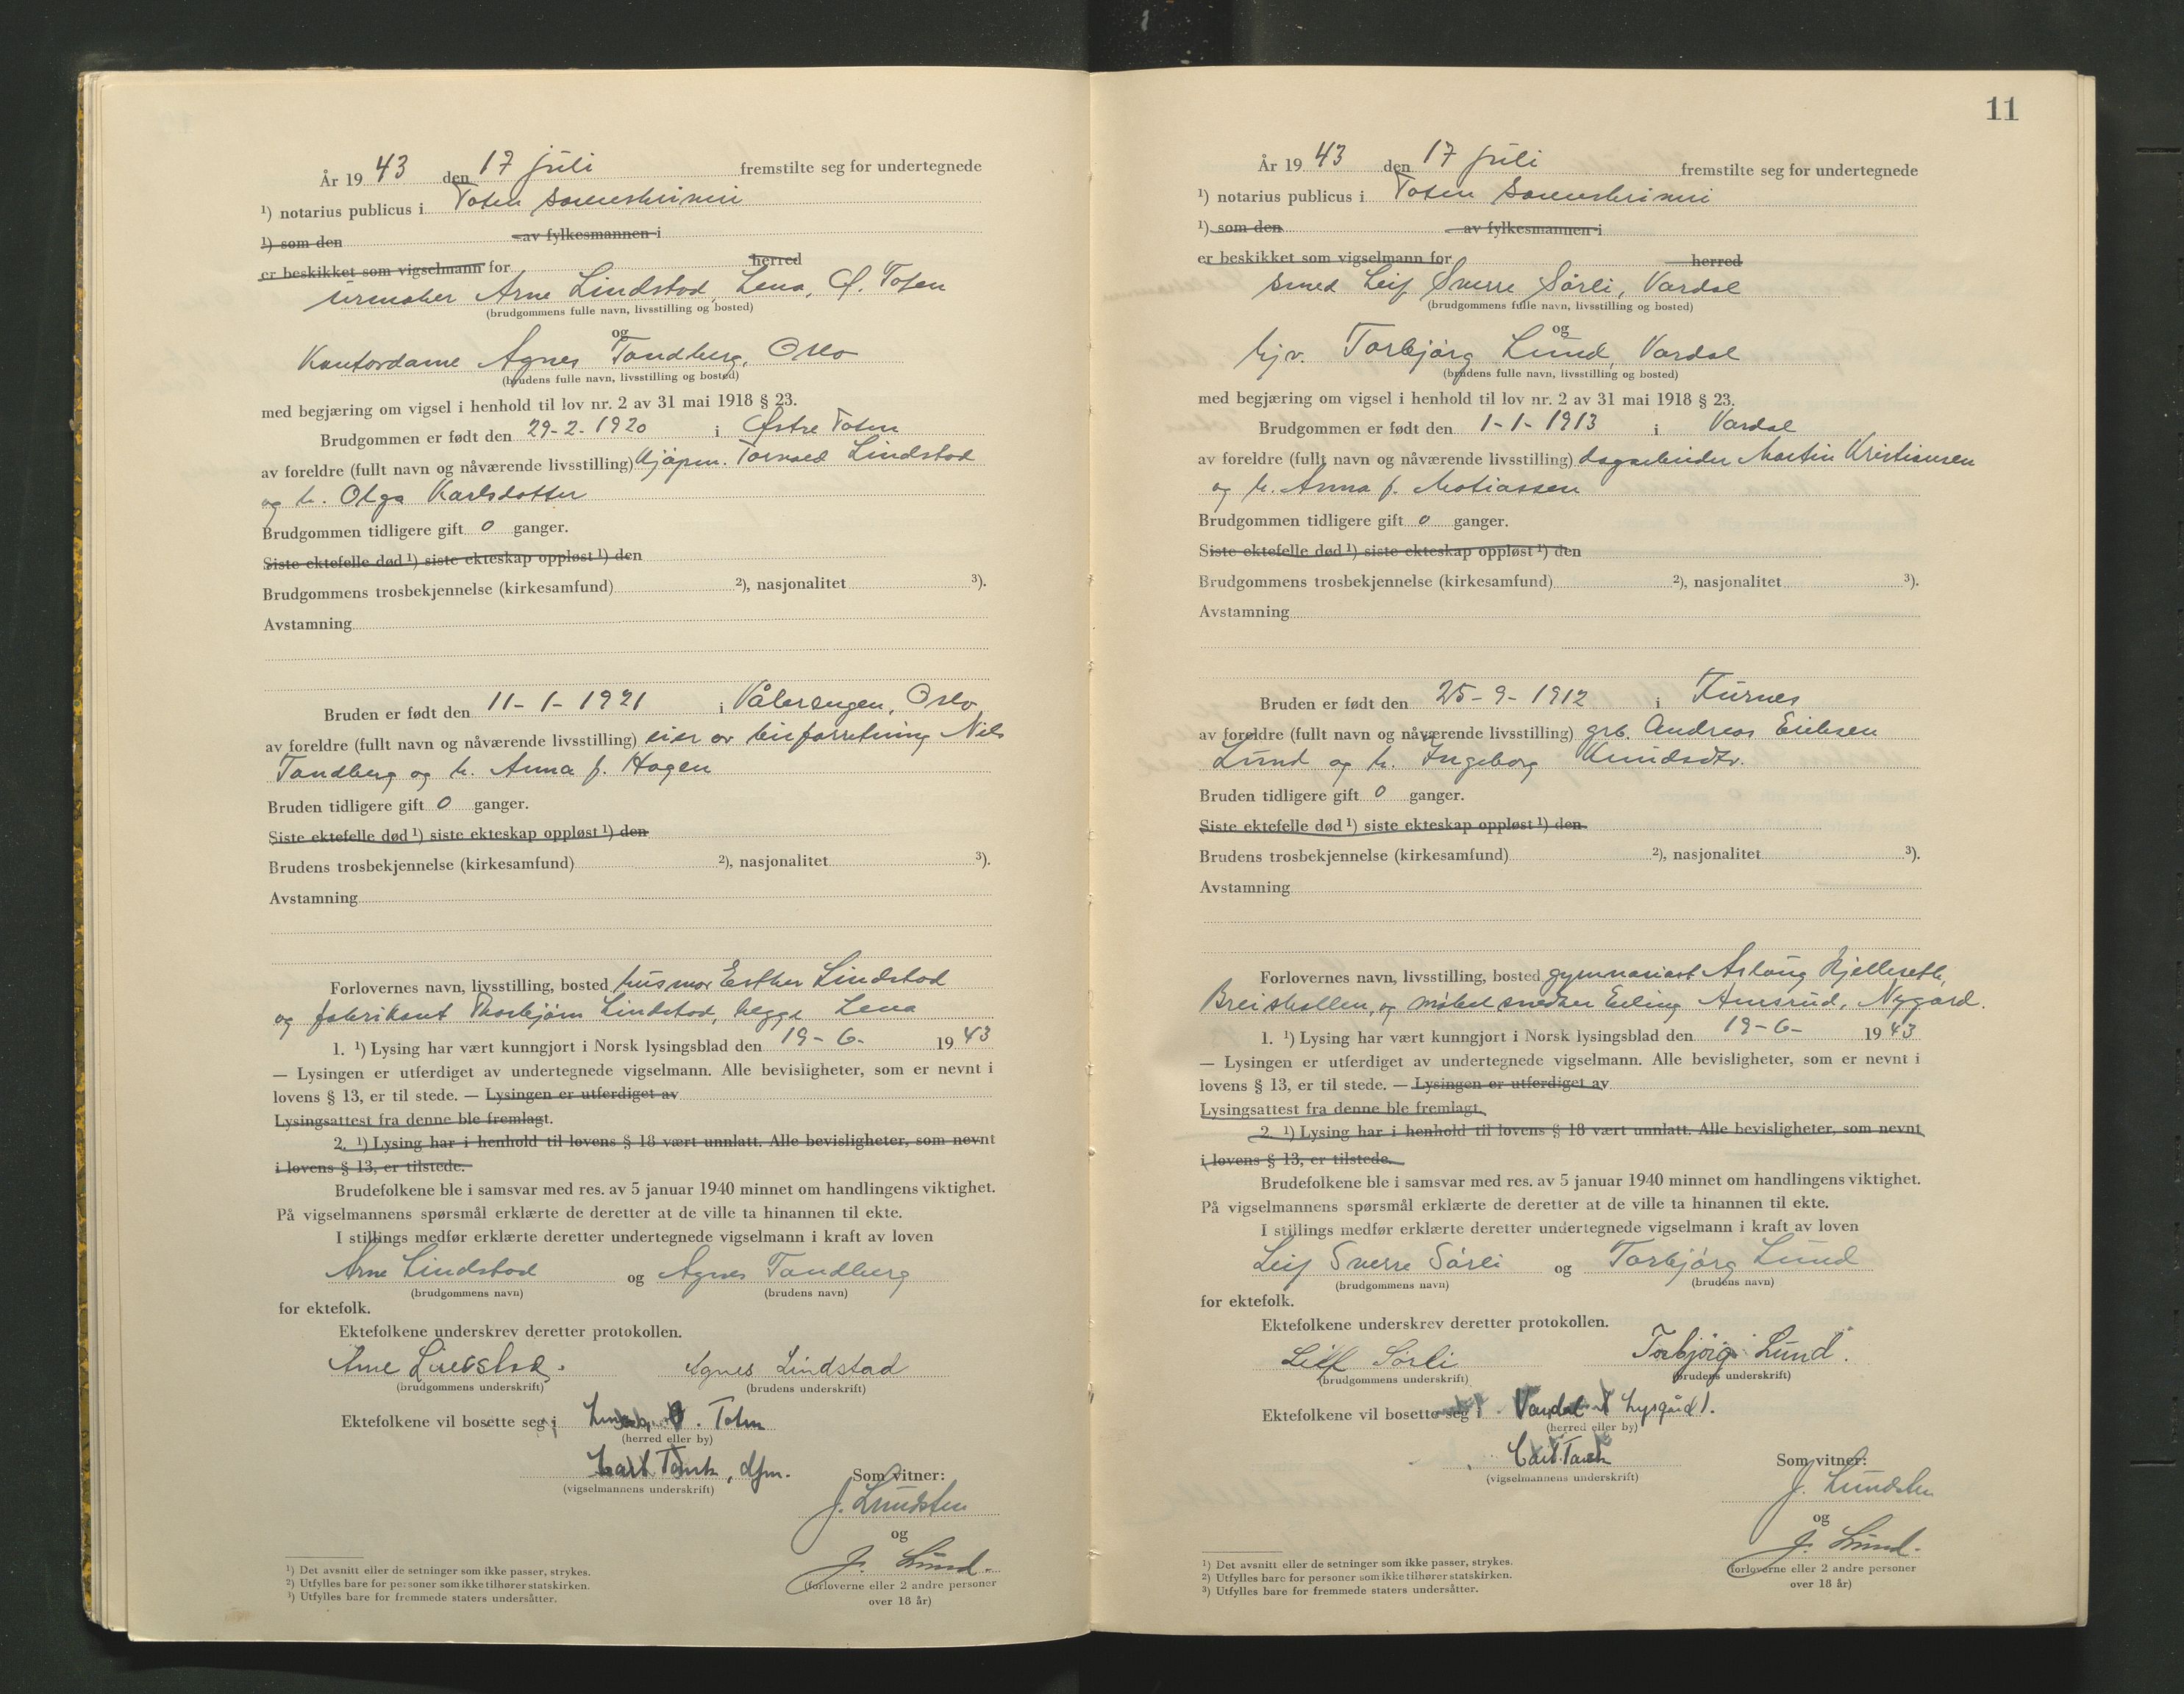 År 19 43 den 17 juli fremstilte seg for undertegnede
¹) notarius publicus i Toten sorenskriveri
¹) som den av fylkesmannen i
er beskikket som vigselmann for herred
urmaker Arne Lindstad, Lena, Ø. Toten
(brudgommens fulle navn, livsstilling og bosted)
og
Kontordame Agnes Tandberg, Oslo
(brudens fulle navn, livsstilling og bosted)
med begjæring om vigsel i henhold til lov nr. 2 av 31 mai 1918 § 23.
Brudgommen er født den 29-2-1920 i Østre Toten
av foreldre (fullt navn og nåværende livsstilling) kjøpm. Torvald Lindstad
og h. Olga Karlsdatter
Brudgommen tidligere gift 0 ganger.
Siste ektefelle død ¹) siste ekteskap oppløst ¹) den
Brudgommens trosbekjennelse (kirkesamfund) ²), nasjonalitet ³).
Avstamning
Bruden er født den 11-1-1921 i Vålerengen, Oslo
av foreldre (fullt navn og nåværende livsstilling) eier av forretning Nils
Tandberg og h. Anna f. Hagen
Bruden tidligere gift 0 ganger.
Siste ektefelle død ¹) siste ekteskap oppløst ¹) den
Brudens trosbekjennelse (kirkesamfund) ²), nasjonalitet ³).
Avstamning
Forlovernes navn, livsstilling, bosted husmor Esther Lindstad
og fabrikant Thorbjørn Lindstad, begge Lena
1. ¹) Lysing har vært kunngjort i Norsk lysingsblad den 19-6- 19 43
— Lysingen er utferdiget av undertegnede vigselmann. Alle bevisligheter, som er nevnt i
lovens § 13, er til stede. — Lysingen er utferdiget av
Lysingsattest fra denne ble fremlagt.
2. ¹) Lysing har i henhold til lovens § 18 vært unnlatt. Alle bevisligheter, som nevnt
i lovens § 13, er tilstede.
Brudefolkene ble i samsvar med res. av 5 januar 1940 minnet om handlingens viktighet.
På vigselmannens spørsmål erklærte de deretter at de ville ta hinannen til ekte.
I stillings medfør erklærte deretter undertegnede vigselmann i kraft av loven
Arne Lindstad og Agnes Tandberg
(brudgommens navn) (brudens navn)
for ektefolk.
Ektefolkene underskrev deretter protokollen.
Arne Lindstad. Agnes Lindstad
(brudgommens underskrift) (brudens underskrift)
Ektefolkene vil bosette seg i Lena, Ø. Toten
(herred eller by)
Carl Tank, dfm.
(vigselmannens underskrift)
Som vitner:
J. Lundsten
og
J. Lund.
(forloverne eller 2 andre personer
over 18 år)
¹) Det avsnitt eller de setninger som ikke passer, strykes.
²) Utfylles bare for personer som ikke tilhører statskirken.
³) Utfylles bare for fremmede staters undersåtter.
11
År 19 43 den 17 juli fremstilte seg for undertegnede
¹) notarius publicus i Toten sorenskriveri
¹) som den av fylkesmannen i
er beskikket som vigselmann for herred
smed Leif Sverre Sørli, Vardal
(brudgommens fulle navn, livsstilling og bosted)
og
hj.v. Torbjørg Lund, Vardal
(brudens fulle navn, livsstilling og bosted)
med begjæring om vigsel i henhold til lov nr. 2 av 31 mai 1918 § 23.
Brudgommen er født den 1-1-1913 i Vardal
av foreldre (fullt navn og nåværende livsstilling) dagarbeider Martin Kristiansen
og h. Anna f. Matiassen
Brudgommen tidligere gift 0 ganger.
Siste ektefelle død ¹) siste ekteskap oppløst ¹) den
Brudgommens trosbekjennelse (kirkesamfund) ²), nasjonalitet ³).
Avstamning
Bruden er født den 25-9-1912 i Furnes
av foreldre (fullt navn og nåværende livsstilling) grb. Andreas Eriksen
Lund og h. Ingeborg Knudsdtr.
Bruden tidligere gift 0 ganger.
Siste ektefelle død ¹) siste ekteskap oppløst ¹) den
Brudens trosbekjennelse (kirkesamfund) ²), nasjonalitet ³).
Avstamning
Forlovernes navn, livsstilling, bosted gymnasiast Aslaug
Breiskallen, og møbelsnedker Erling Amsrud, Nygard.
1. ¹) Lysing har vært kunngjort i Norsk lysingsblad den 19-6- 19 43
— Lysingen er utferdiget av undertegnede vigselmann. Alle bevisligheter, som er nevnt i
lovens § 13, er til stede. — Lysingen er utferdiget av
Lysingsattest fra denne ble fremlagt.
2. ¹) Lysing har i henhold til lovens § 18 vært unnlatt. Alle bevisligheter, som nevnt
i lovens § 13, er tilstede.
Brudefolkene ble i samsvar med res. av 5 januar 1940 minnet om handlingens viktighet.
På vigselmannens spørsmål erklærte de deretter at de ville ta hinannen til ekte.
I stillings medfør erklærte deretter undertegnede vigselmann i kraft av loven
Leif Sverre Sørli og Torbjørg Lund
(brudgommens navn) (brudens navn)
for ektefolk.
Ektefolkene underskrev deretter protokollen.
Leif Sørli Torbjørg Lund.
(brudgommens underskrift) (brudens underskrift)
Ektefolkene vil bosette seg i Vardal
(herred eller by)
Carl Tank
(vigselmannens underskrift)
Som vitner:
J. Lundsten
og
J. Lund.
(forloverne eller 2 andre personer
over 18 år)
¹) Det avsnitt eller de setninger som ikke passer, strykes.
²) Utfylles bare for personer som ikke tilhører statskirken.
³) Utfylles bare for fremmede staters undersåtter.